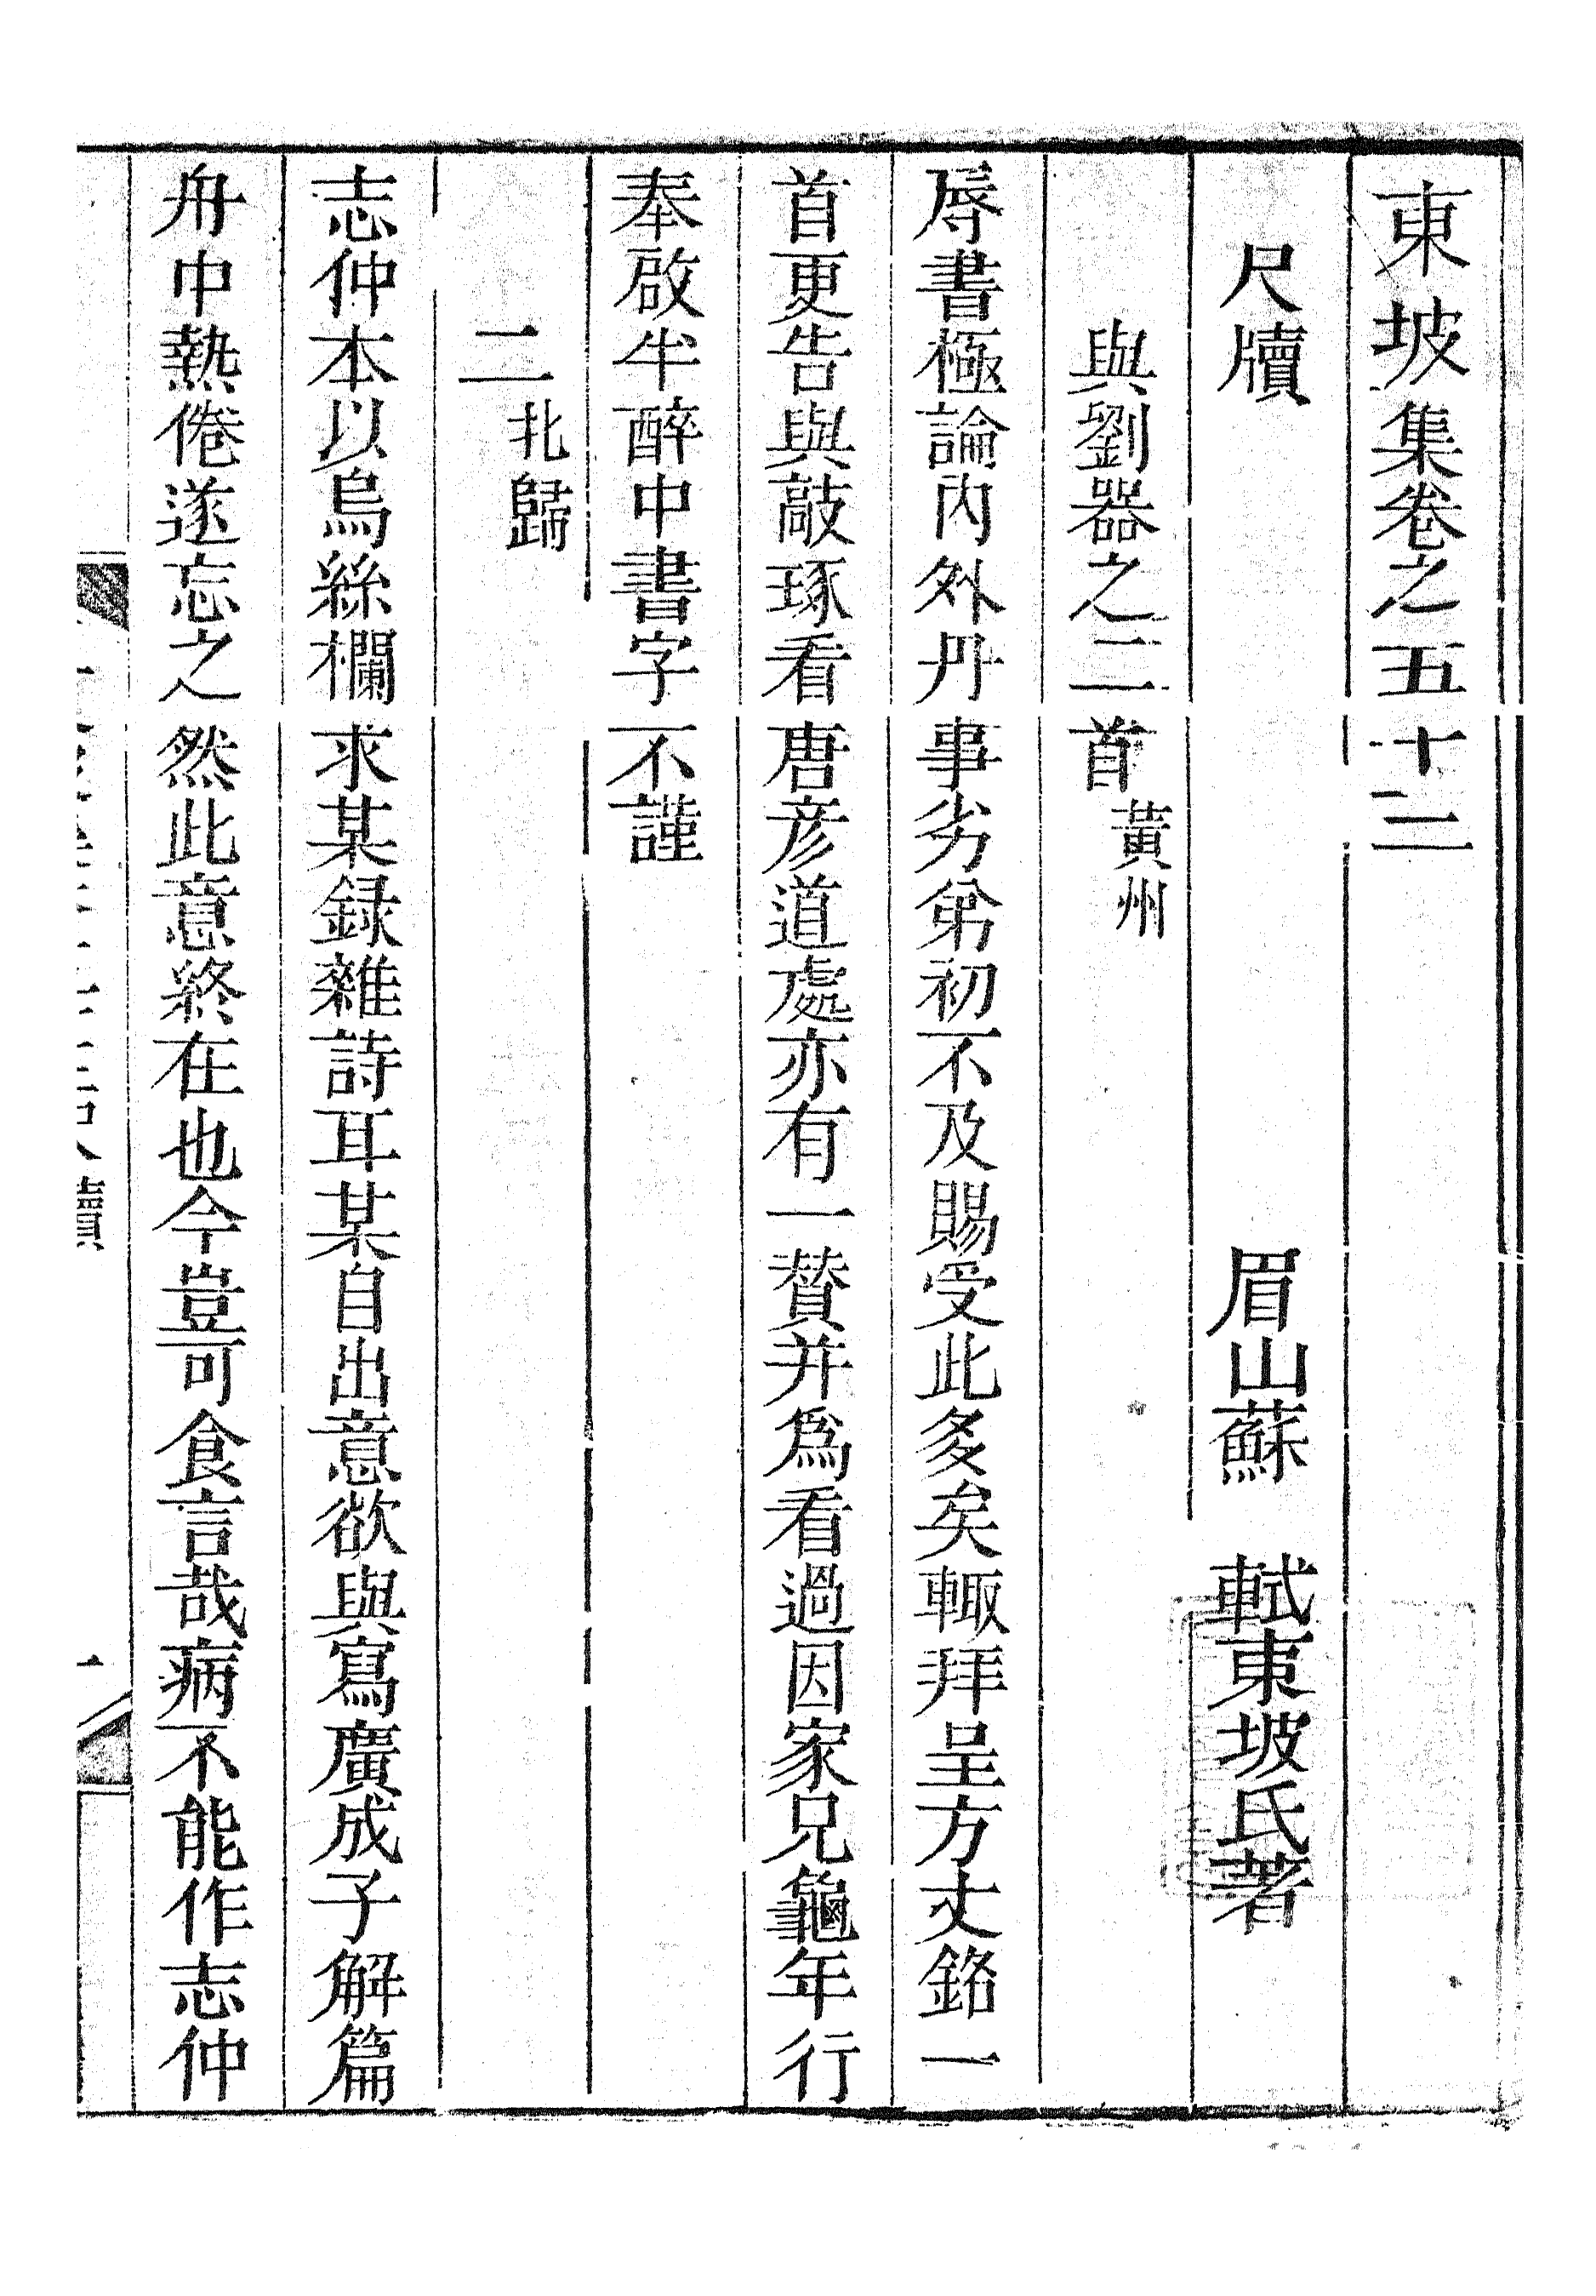 東坡集卷之五十二
尺牘
眉山蘇 軾東坡氏著
與劉器之二首黃州
辱書極論內外丹事劣弟初不及賜受此多矣輙拜呈方丈銘一
首更告與敲琢看唐彦道處亦有一贊并爲看過因家兄龜年行
奉啟半醉中書字不謹
二北歸
志仲本以烏絲欄求某録雜詩耳某自出意欲與寫廣成子解篇
舟中熱倦遂忘之然此意終在也今豈可食言哉病不能作志仲